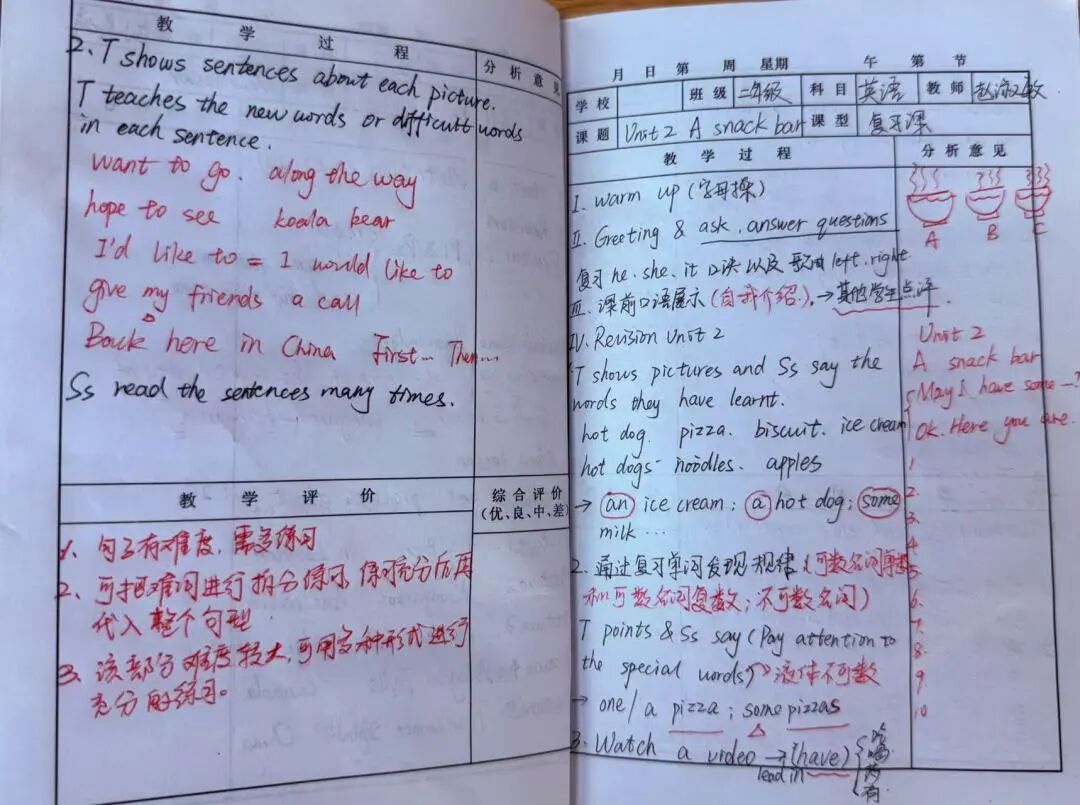 教 学 过 程
分 析 意 见
2. T shows sentences about each picture.
T teaches the new words or difficult words
in each sentence.
want to go. along the way
hope to see koala bear
I'd like to = I would like to
give my friends a call
Back here in China First... Then...
Ss read the sentences many times.
教 学 评 价
综合评价
(优、良、中、差)
1、句子有难度,需多练习
2、可把难词进行拆分练习,练习充分后再
代入整个句型
3、该部分难度较大,可用多种形式进行
充分的练习。
月 日 第 周 星期 午 第 节
学 校 班 级 二年级 科 目 英语 教 师
课 题 Unit 2 A snack bar 课 型 复习课
教 学 过 程
分 析 意 见
I. warm up (字母操)
II. Greeting & ask. answer questions
复习 he. she. it 口诀以及歌曲 left. right
III. 课前口语展示(自我介绍).→其他学生点评.
IV. Revision Unit 2
T shows pictures and Ss say the
words they have learnt.
hot dog. pizza. biscuit. ice cream
hot dogs noodles. apples
→ an ice cream; a hot dog; some
milk ...
2. 通过复习单词发现规律(可数名词单数
和可数名词复数;不可数名词)
T points & Ss say (Pay attention to
the special words) 液体不可数
→ one/a pizza; some pizzas
3. Watch a video → (have) 吃 喝 有
lead in
A B C
Unit 2
A snack bar
May I have some —?
Ok. Here you are.
1
2.
3.
4
5
6.
7.
8.
9
10